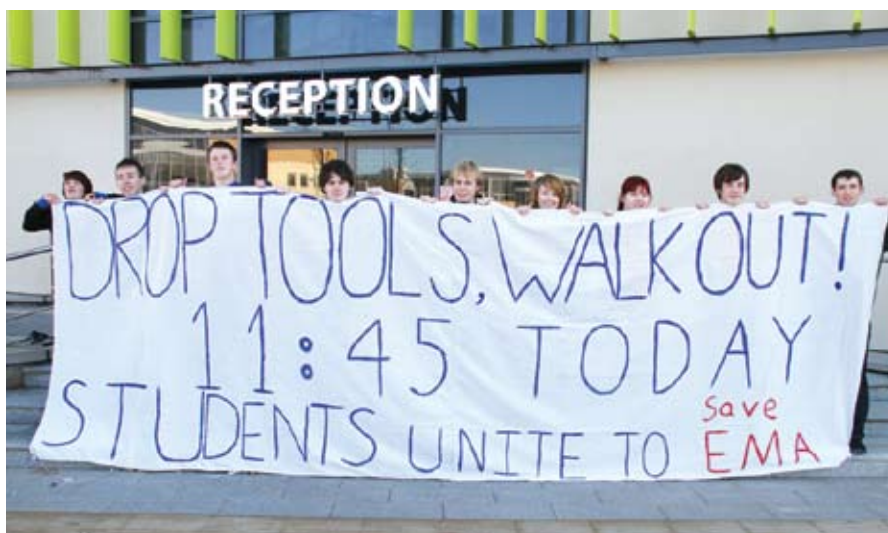 RECEPTION
DROP TOOLS, WALK OUT!
11:45 TODAY
STUDENTS UNITE TO save EMA